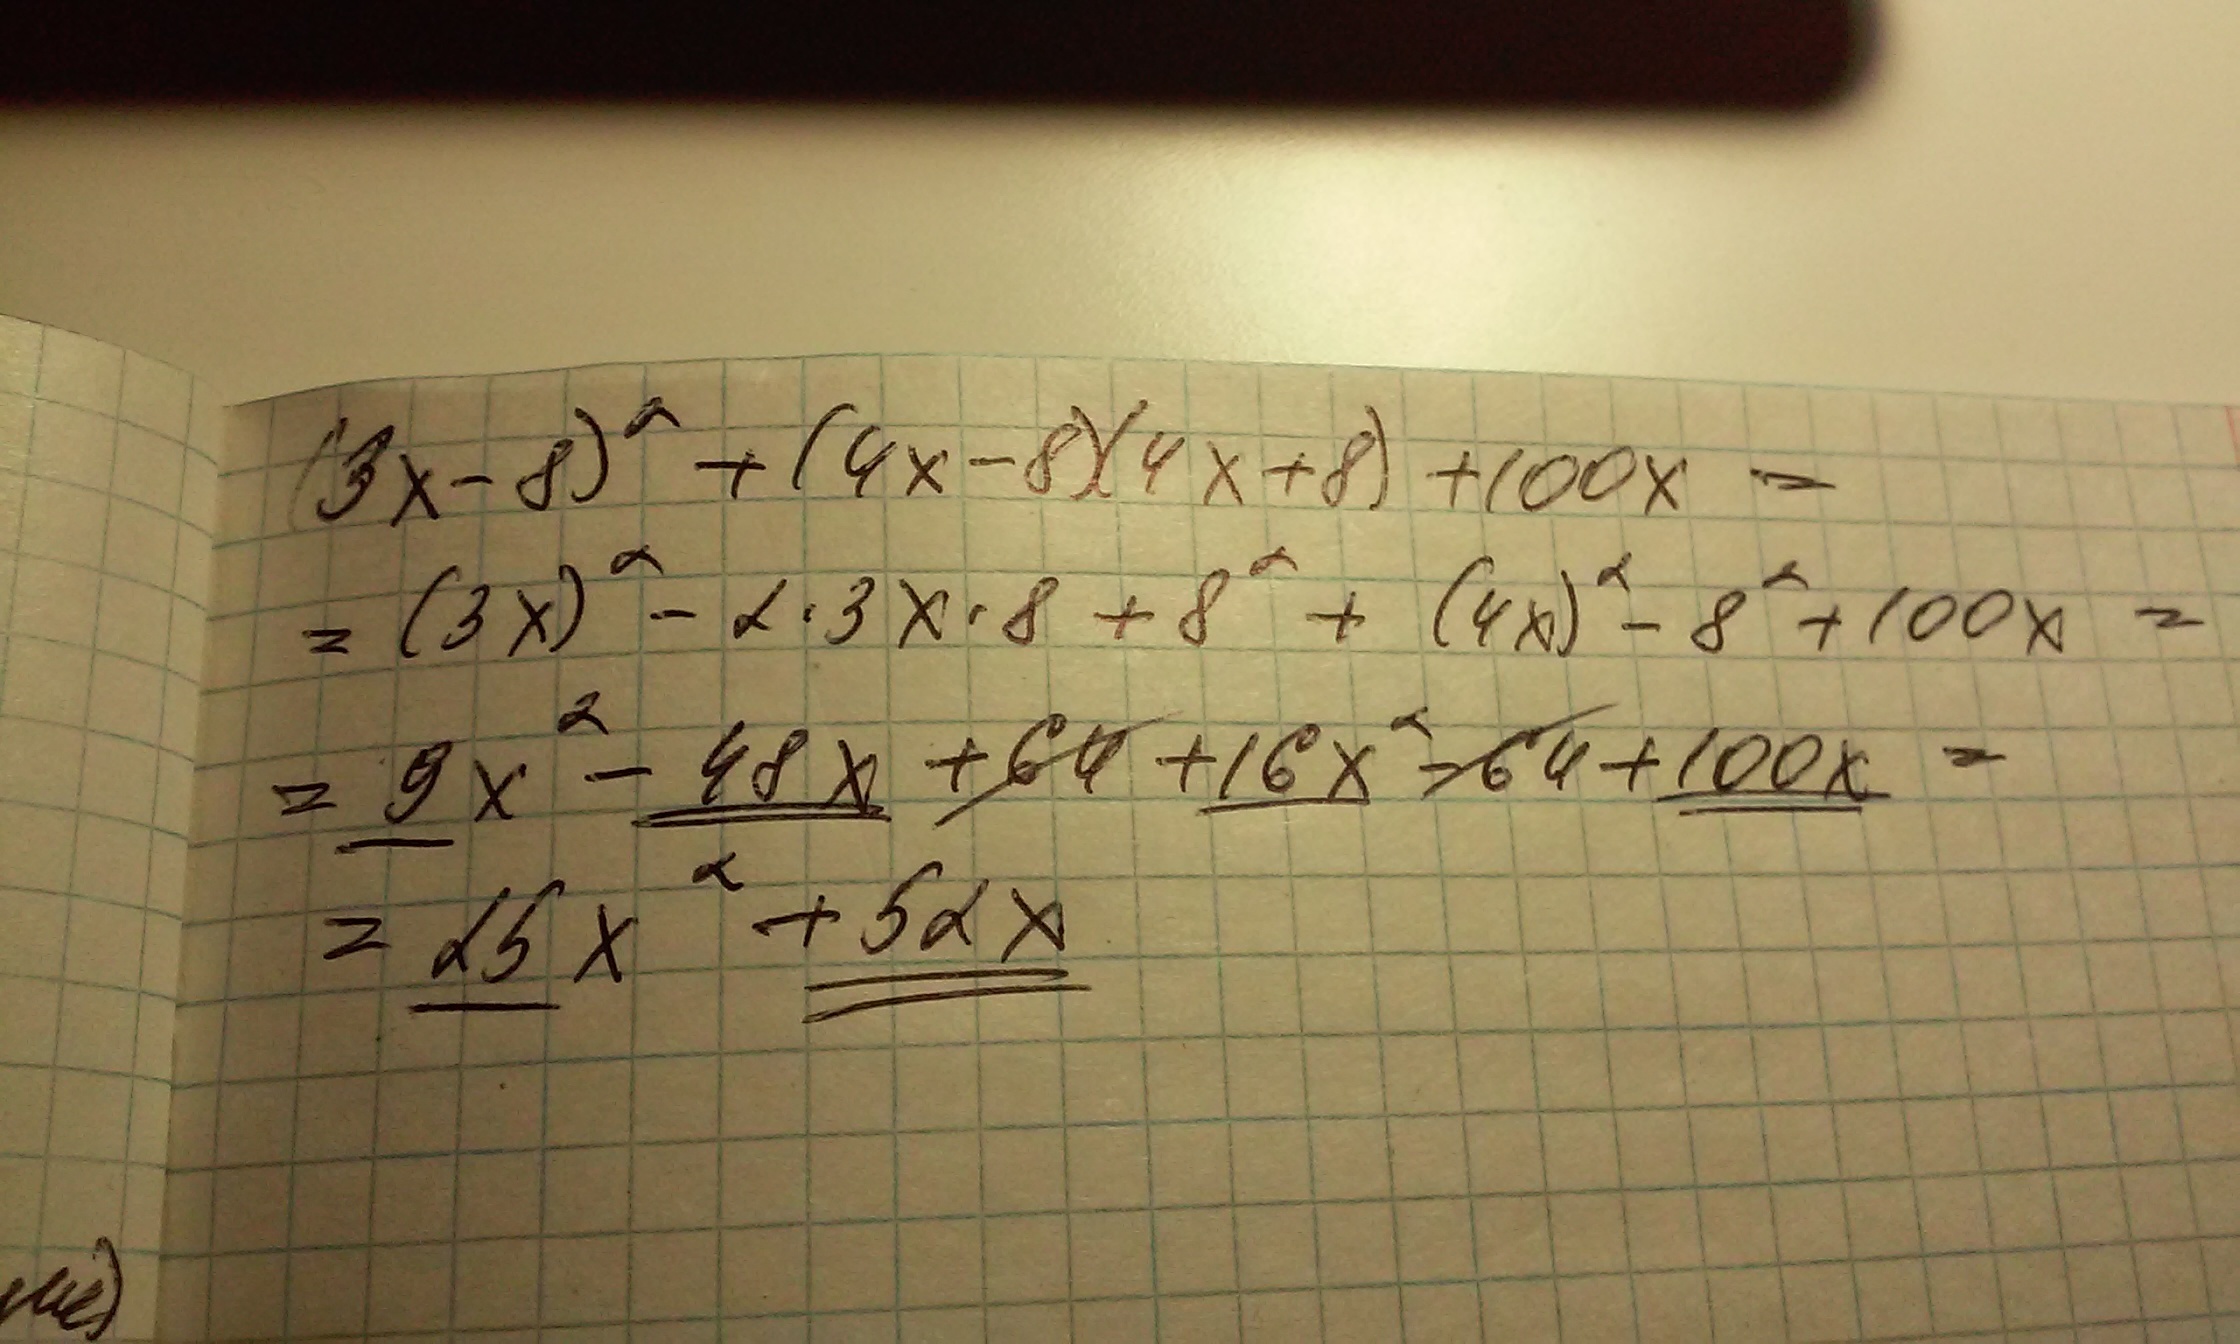 (3x-8)² + (4x-8)(4x+8) +100x =
= (3x)² - 2·3x·8 + 8² + (4x)² - 8² + 100x =
= 9x² - 48x + 64 + 16x² - 64 + 100x =
= 25x² + 52x